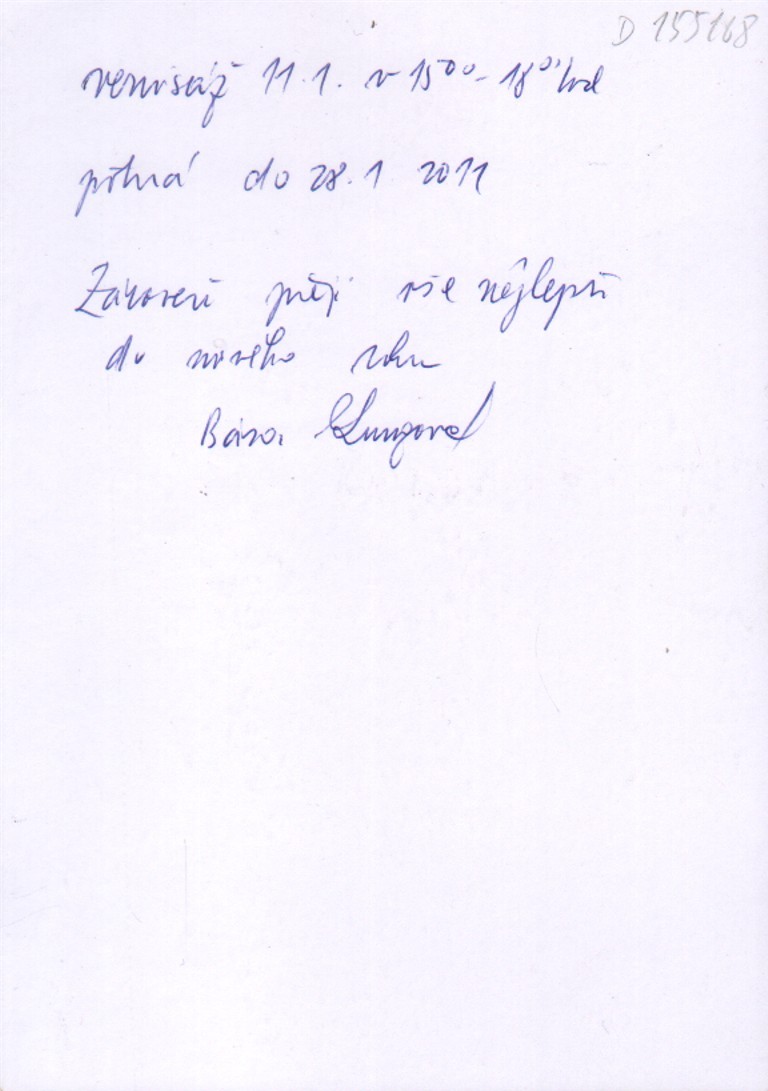 D 155168
vernisáž 11.1. v 15⁰⁰-18⁰⁰ hod
potrvá do 28.1 2011
Zároveň přeji vše nejlepší
do nového roku
Bára